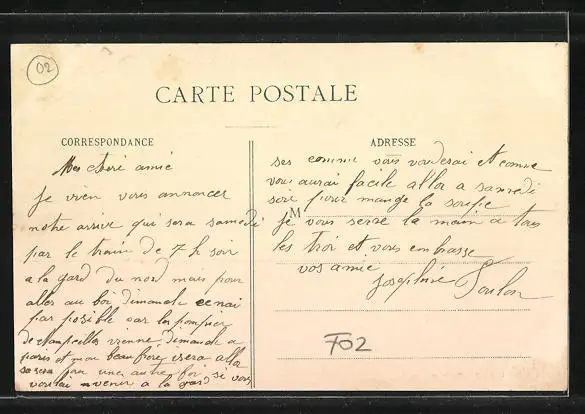 02
CARTE POSTALE
CORRESPONDANCE
Mes cheré amié
Je vien vous annoncer
notre arive qui sera samedi
par le train de 7 h soir
a la gard du nord mais pour
aller au boi dimande ce nai
par posible car les pompier
de vienne dimande a
paris et mon beau frère isera alla
sa sera par une autre foi si vous
voulai venir a la gard
ADRESSE
ses comme vous vouderai et comme
vous aurai facile alla a samedi
sore pour mange la soupe
M
je vous serre la main a tous
les troi et vous embrasse
vos amie
Josephine Toulon
F02